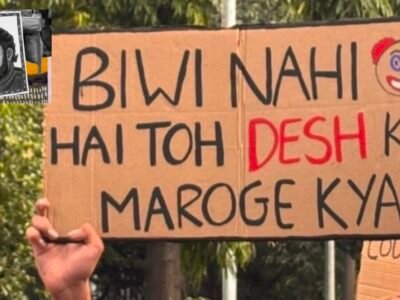 BIWI NAHI
HAI TOH DESH K
MAROGE KYA
CO